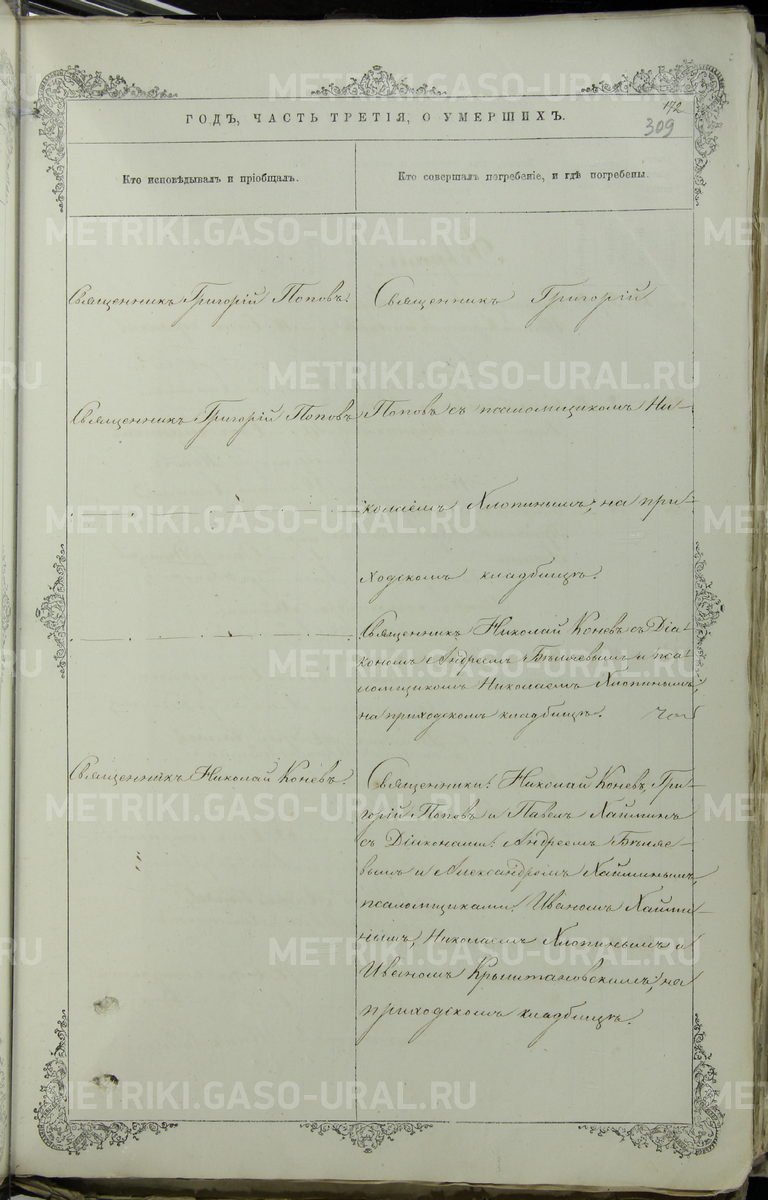 172
309
ГОДЪ, ЧАСТЬ ТРЕТІЯ, О УМЕРШИХЪ.
Кто исповѣдывалъ и пріобщалъ.
Кто совершалъ погребеніе, и гдѣ погребены.
Священникъ Григорій Поповъ.
Священникъ Григорій
Священникъ Григорій Поповъ
Поповъ съ псаломщикомъ Ни-
колаемъ Хлопинымъ, на при-
ходскомъ кладбищѣ.
Священникъ Николай Коневъ съ Діа-
кономъ Андреемъ Бѣляевымъ и пса-
ломщикомъ Николаемъ Хлопинымъ,
на приходскомъ кладбищѣ.
Священникъ Николай Коневъ.
Священники: Николай Коневъ, Гри-
горій Поповъ и Павелъ Хайминъ
съ Діаконами: Андреемъ Бѣляе-
вымъ и Александромъ Хайминымъ,
псаломщиками: Иваномъ Хайми-
нымъ, Николаемъ Хлопинымъ и
Иваномъ Крыштановскимъ, на
приходскомъ кладбищѣ.
METRIKI.GASO-URAL.RU